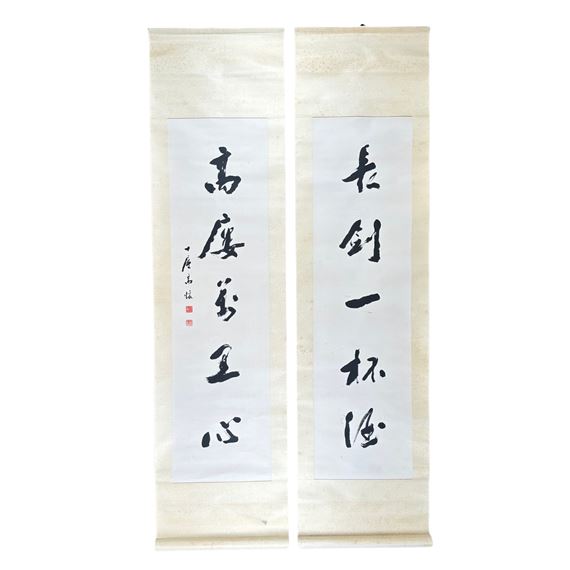 長劍一杯酒
高廔萬里心